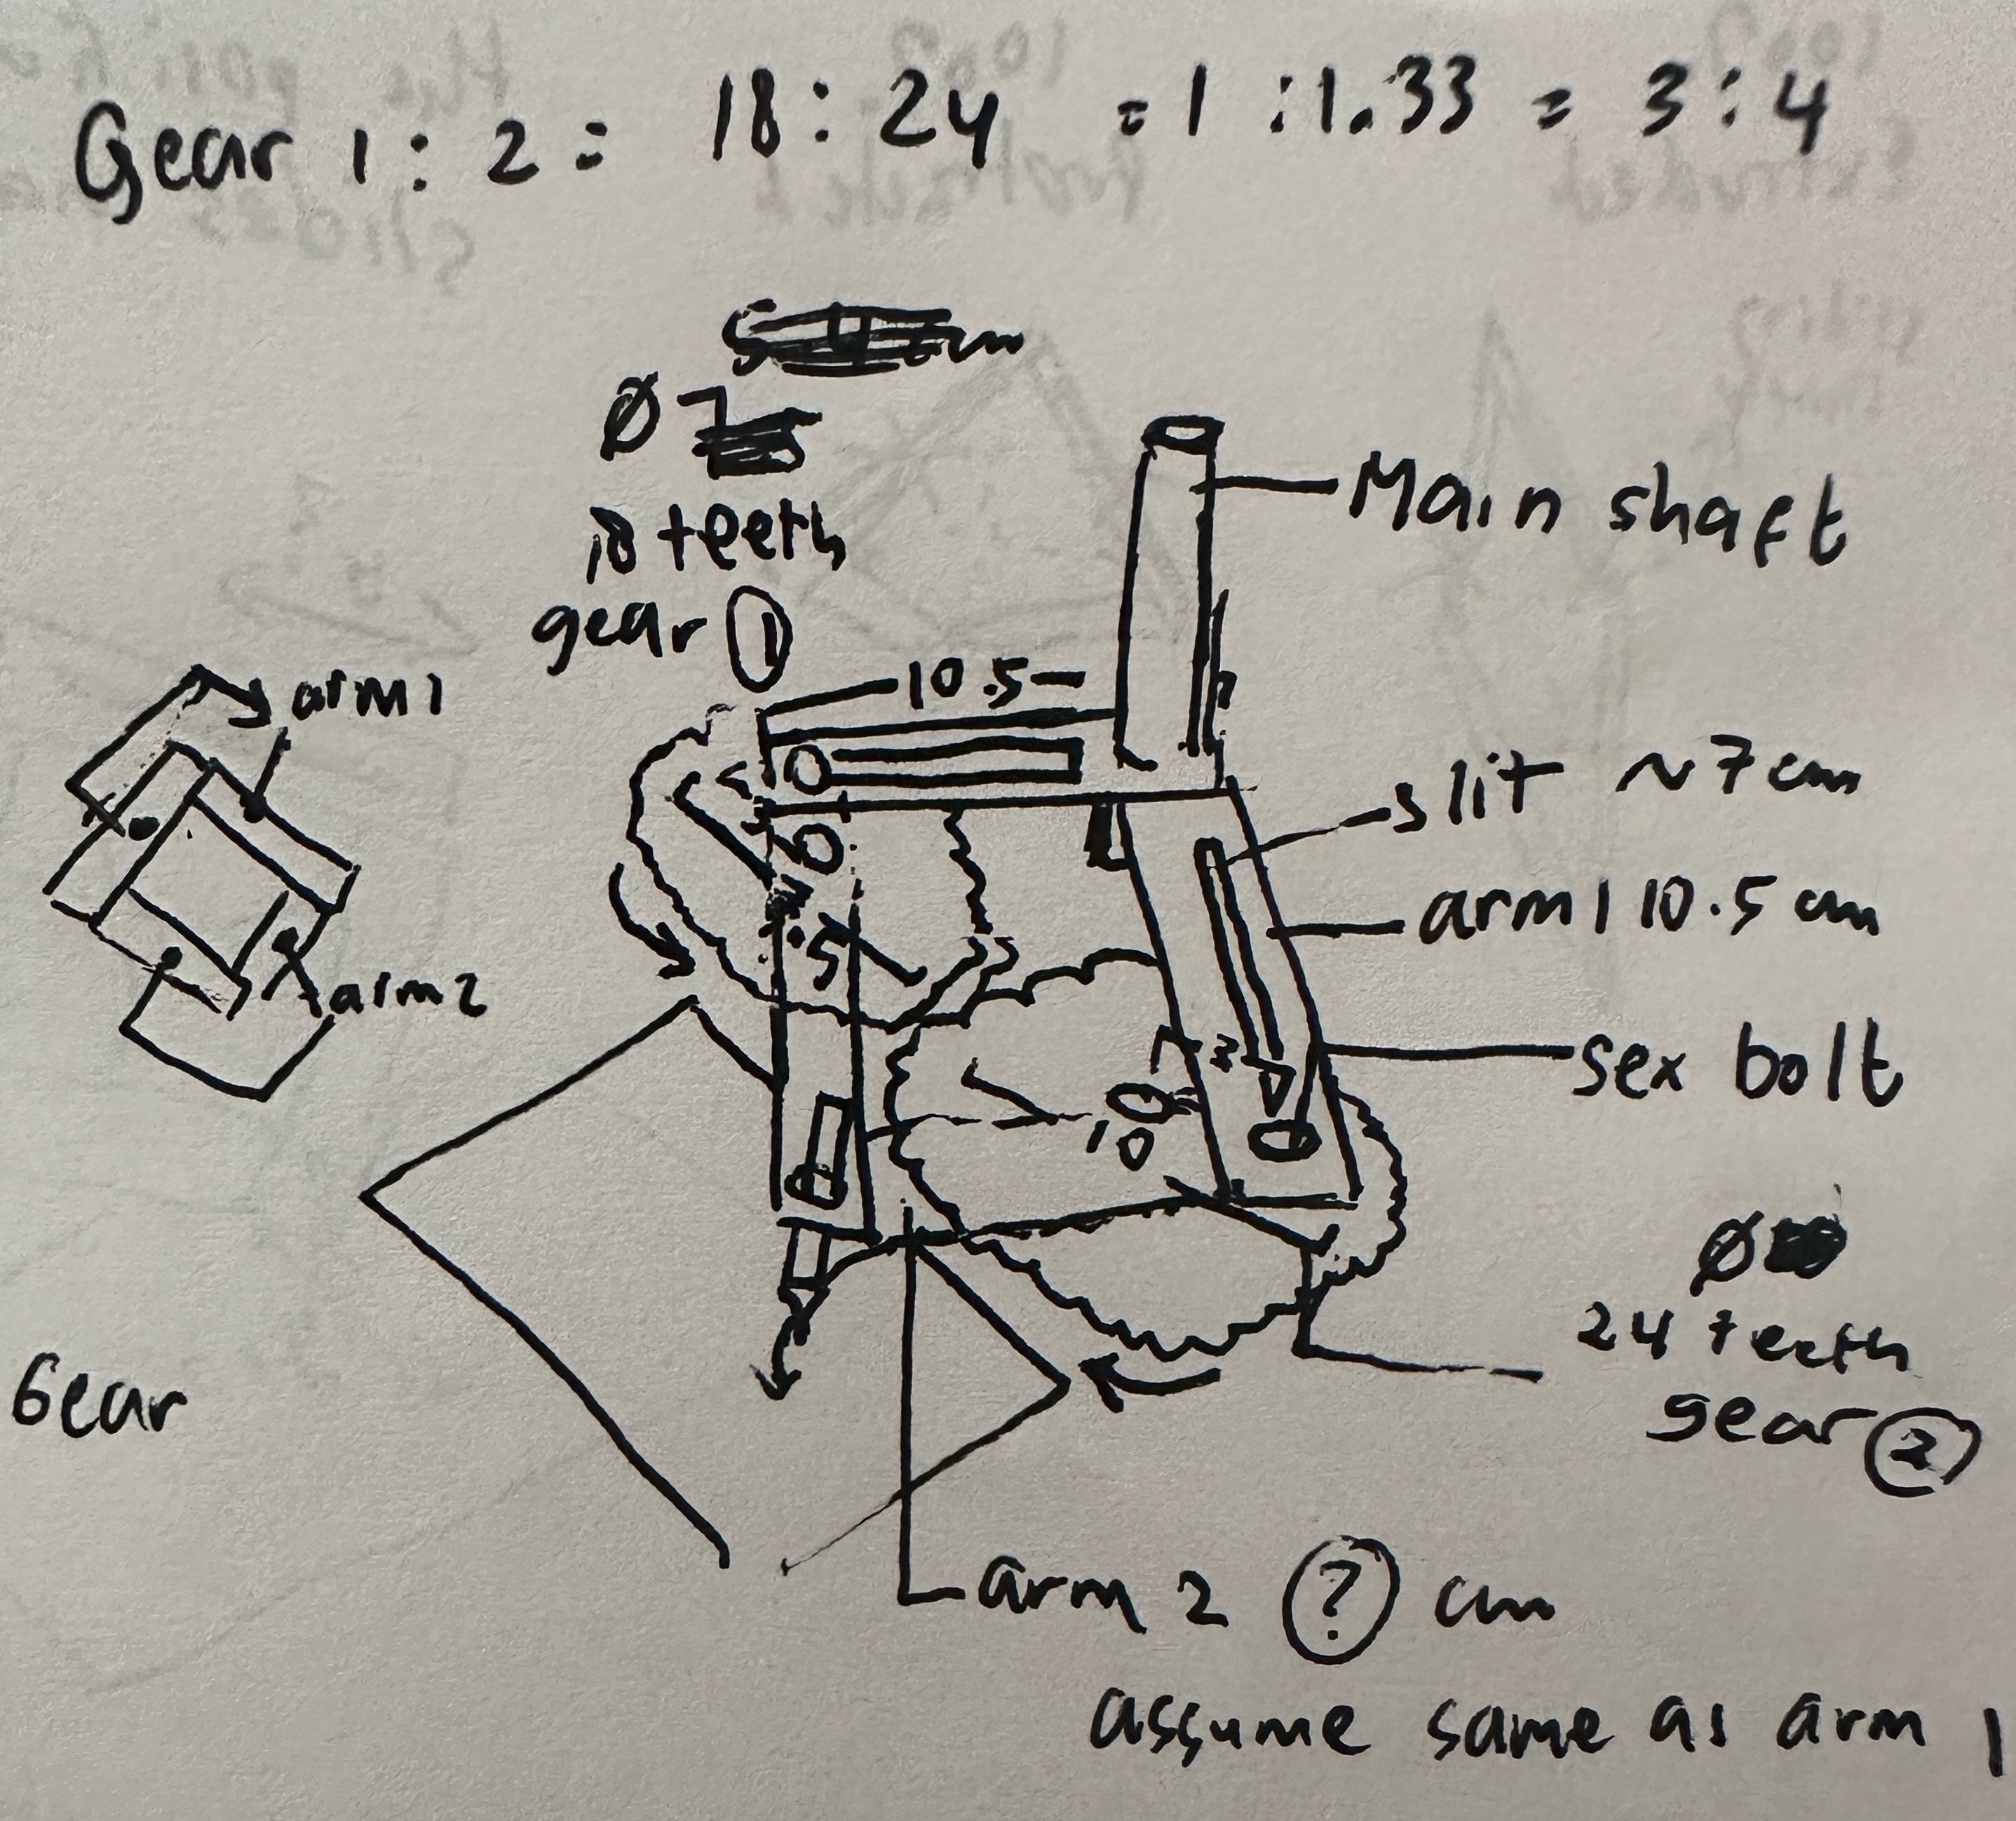 Gear 1 : 2 = 18 : 24 = 1 : 1.33 = 3 : 4
Ø 7
18 teeth
gear ①
Main shaft
10.5
arm 1
slit ~7 cm
arm 1 10.5 cm
.5
arm 2
sex bolt
10
Ø
24 teeth
gear ②
Gear
arm 2 ? cm
assume same as arm 1